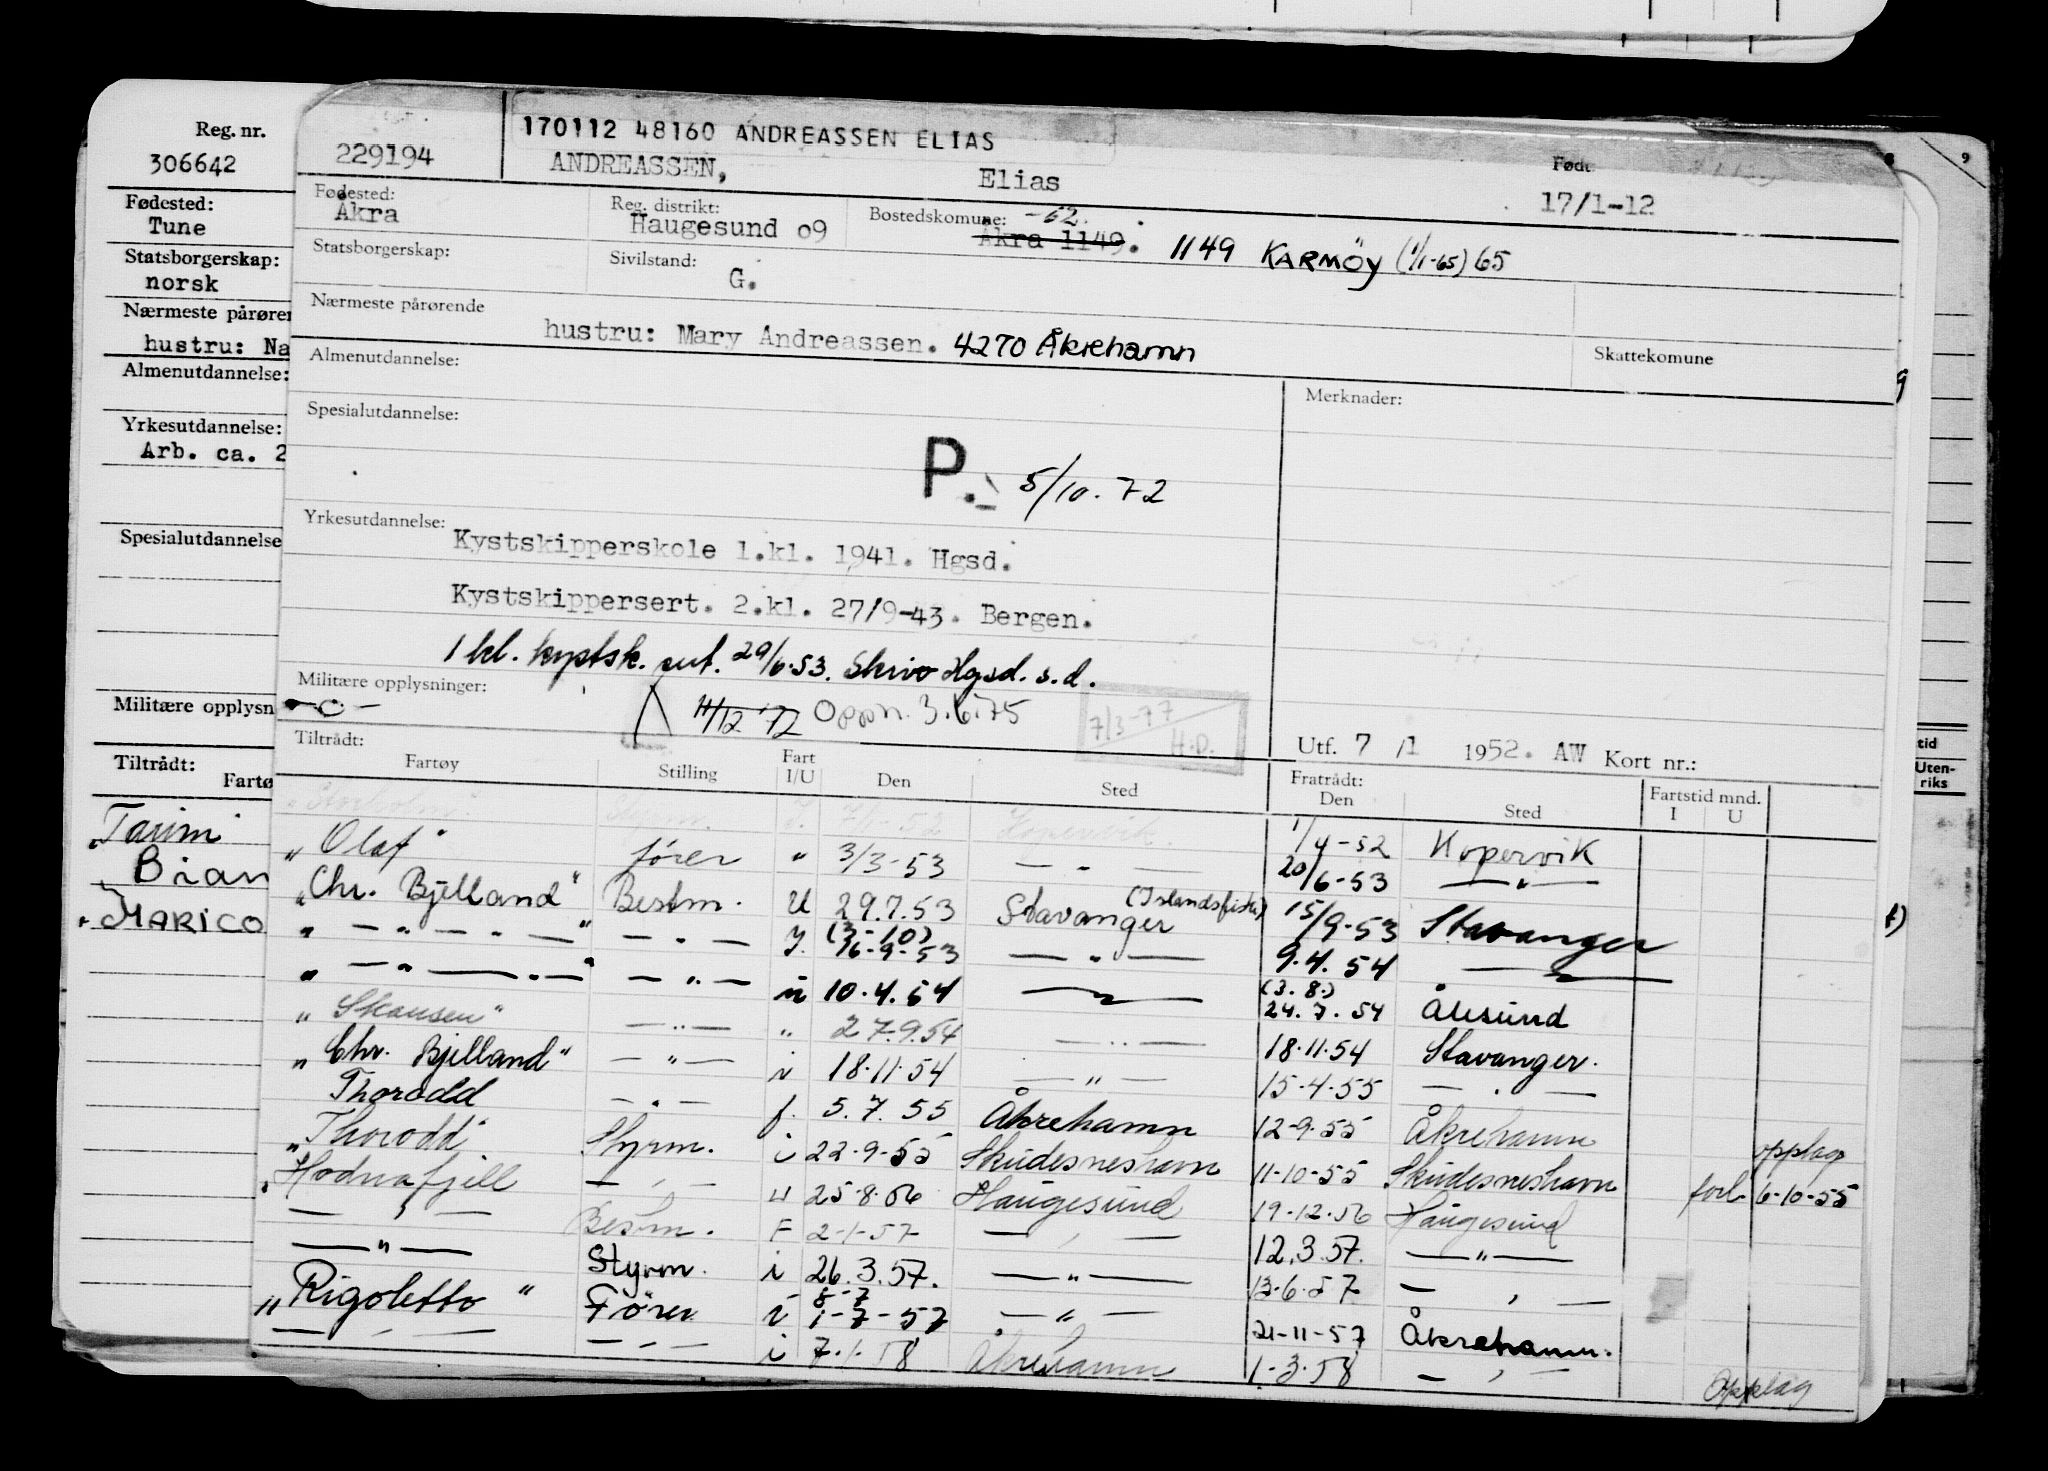 Reg. nr.
306642
Fødested:
Tune
Statsborgerskap:
norsk
Nærmeste pårører
hustru: Na
Almenutdannelse:
Yrkesutdannelse:
Arb. ca. 2
Spesialutdannelse
Militære opplysn
Tiltrådt:
Fartø
"Taurni"
Brian
"MARICO
170112 48160 ANDREASSEN ELIAS
229194 ANDREASSEN, Elias Født 17/1-12
Fødested: Åkra Reg. distrikt: Haugesund 09 Bostedskomune: -62. Åkra 1149. 1149 KARMÖY (1/1-65) 65
Statsborgerskap: Sivilstand: G.
Nærmeste pårørende hustru: Mary Andreassen. 4270 Åkrehamn
Almenutdannelse: Skattekomune
Spesialutdannelse: Merknader:
P. 5/10.72
Yrkesutdannelse: Kystskipperskole 1.kl. 1941. Hgsd.
Kystskippersert. 2.kl. 27/9-43. Bergen.
1 kl. kystsk. sert. 29/6.53. Skriv Hgsd. s.d.
Militære opplysninger:
-0- 11/12 72 Oppn. 3.6.75 7/3-77 H.P.
Utf. 7/1 1952. AW Kort nr.:
Tiltrådt: Fratrådt: Fartstid mnd.
Fartøy Stilling Fart I/U Den Sted Den Sted I U
Kopervik 1/4-52 Kopervik
"Olaf" fører " 3/3-53 — " — 20/6-53 — " —
"Chr. Bjelland" Bestm. U 29.7.53 Stavanger (Islandsfiske) 15/9-53 Stavanger
" — " — " — " — " — I. (3-10) 16-9-53 — " — 9.4.54 — " —
" — " — " — " — " — u 10.4.54 — " — (3.8.) 24.7.54 Ålesund
"Skansen" — " — " 27.9.54 — " — 18.11.54 Stavanger.
"Chr. Bjelland" — " — i 18.11.54 — " — 15.4.55 — " —
Thorodd — " — f. 5.7.55 Åkrehamn 12-9-55 Åkrehamn
"Thorodd" Styrm. i 22-9-55 Skudesneshavn 11-10-55 Skudesneshavn opplag
"Hodnafjell — " — u 25.8.56 Haugesund 19.12.56 Haugesund forl. 6-10-55
— " — Bestm. F 2-1-57 — " — 12.3.57. — " —
— " — Styrm. i 26.3.57. — " — 13.6.57 — " —
"Rigoletto" Fører i 8-7 1-7-57 — " — 21-11-57 Åkrehamn.
— " — — " — i 7.1.58 Åkrehamn 1.3.58 — " — Opplag
9
tid
Uten-
riks